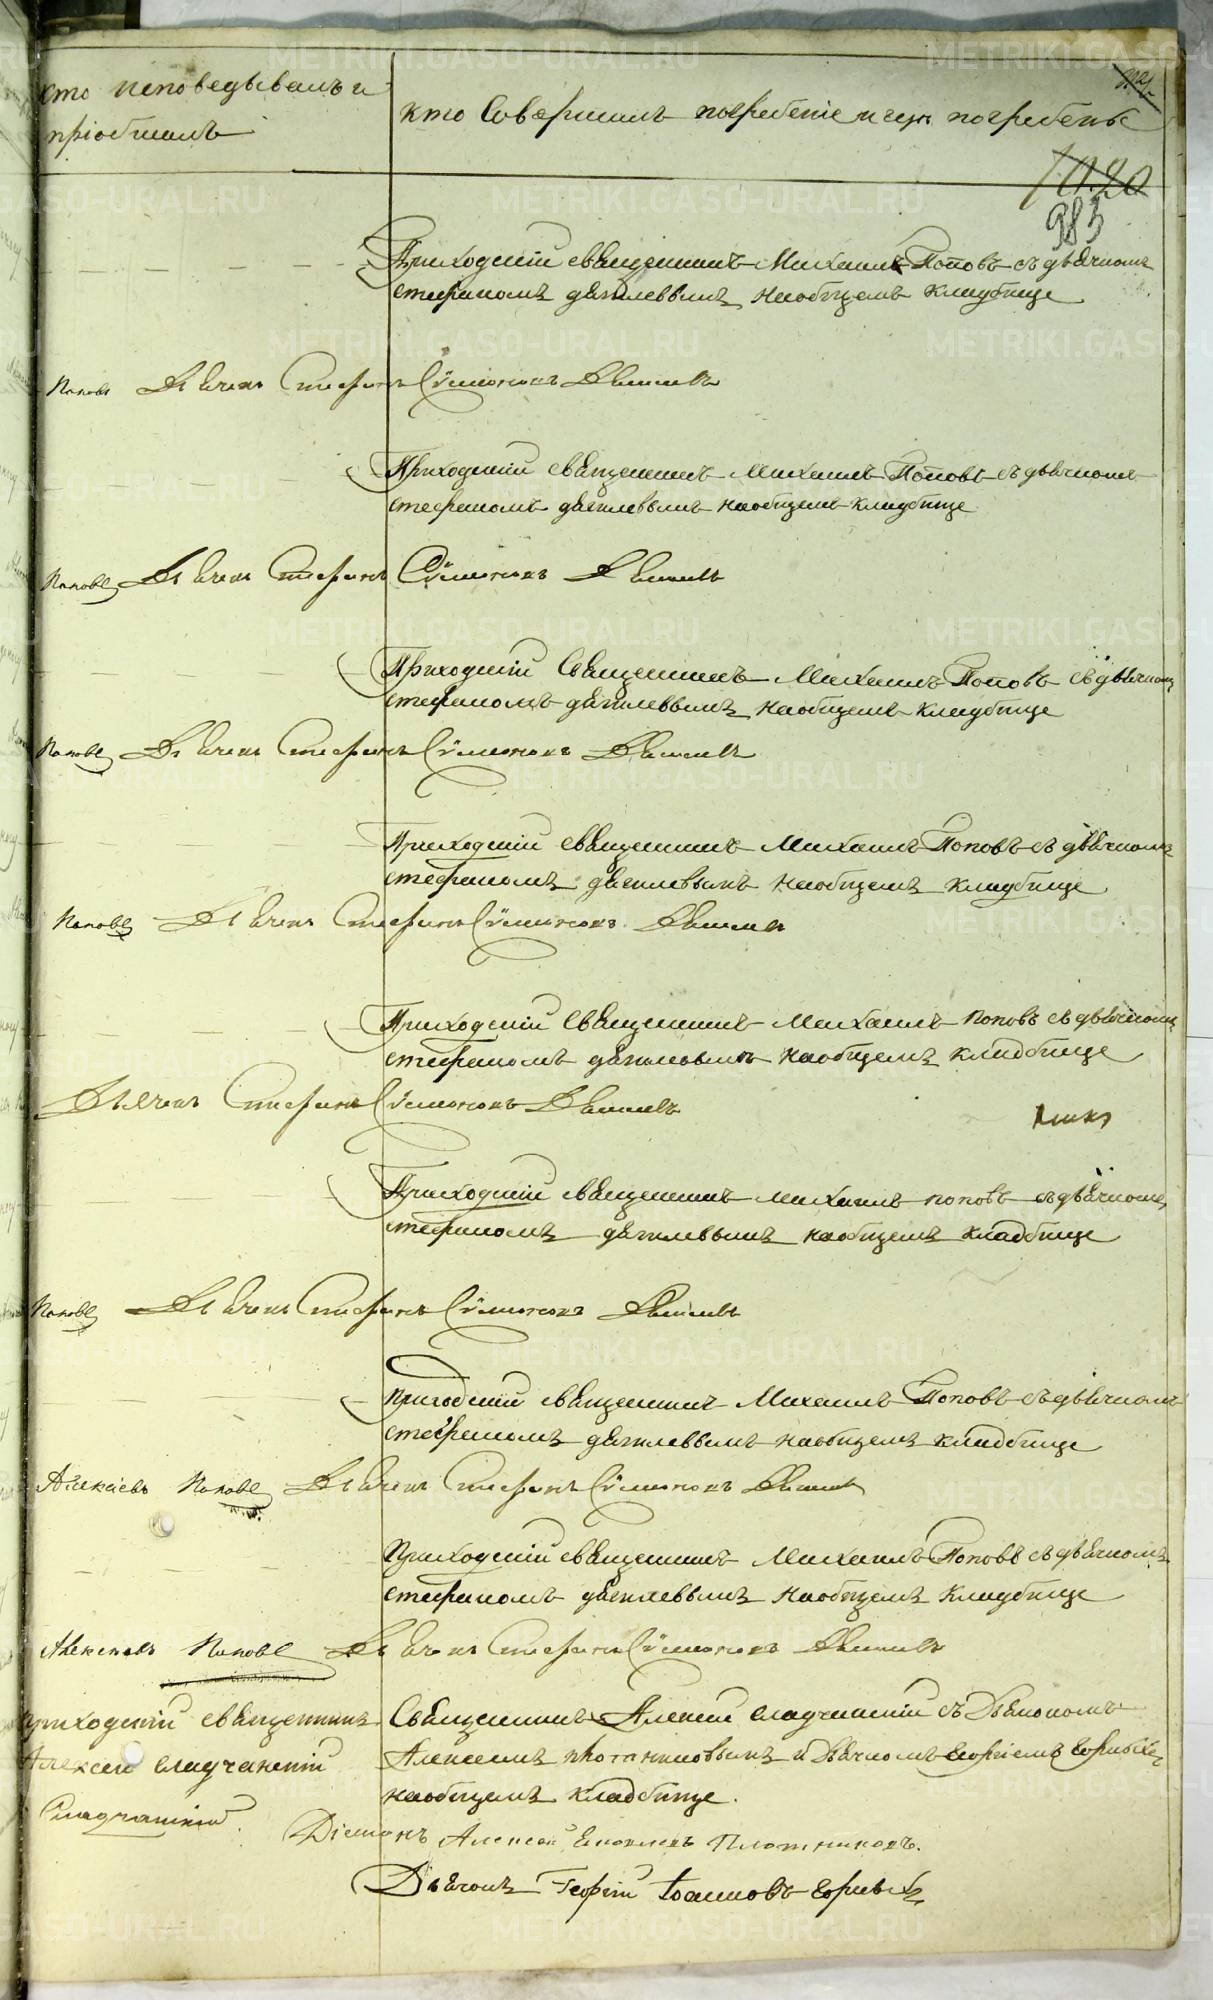 кто исповедывалъ и
пріобщалъ
кто Совершалъ погребеніе и гдѣ погребены
1020
983
Приходскій священникъ Михаилъ Поповъ съ дьячкомъ
стефаномъ дягилевымъ наобщемъ кладбище
Поповъ Дьячекъ Стефанъ Сѵмеоновъ Дягилевъ
Приходскій священникъ Михаилъ Поповъ съ дьячкомъ
стефаномъ дягилевымъ наобщемъ кладбище
Поповъ Дьячекъ Стефанъ Сѵмеоновъ Дягилевъ
Приходскій Священникъ Михаилъ Поповъ съ дьячкомъ
стефаномъ дягилевымъ наобщемъ кладбище
Поповъ Дьячекъ Стефанъ Сѵмеоновъ Дягилевъ
Приходскій священникъ Михаилъ Поповъ съ дьячкомъ
стефаномъ дягилевымъ наобщемъ кладбище
Поповъ Дьячекъ Стефанъ Сѵмеоновъ Дягилевъ
Приходскій священникъ Михаилъ Поповъ съ дьячкомъ
стефаномъ дягилевымъ наобщемъ кладбище
Дьячекъ Стефанъ Сѵмеоновъ Дягилевъ
Приходскій священникъ михаилъ поповъ съ дьячкомъ
стефаномъ дягилевымъ наобщемъ кладбище
Поповъ Дьячекъ Стефанъ Сѵмеоновъ Дягилевъ
Приходскій священникъ Михаилъ Поповъ съ дьячкомъ
стефаномъ дягилевымъ наобщемъ кладбище
Алексіевъ Поповъ Дьячекъ Стефанъ Сѵмеоновъ Дягилевъ
Приходскій священникъ Михаилъ Поповъ съ дьячкомъ
стефаномъ дягилевымъ наобщемъ кладбище
Алексіевъ Поповъ Дьячекъ Стефанъ Сѵмеоновъ Дягилевъ
приходскій священникъ Священникъ Алексій сладчанскій съ Діакономъ
Алексей сладчанскій Алексеемъ плотниковымъ и Дьячкомъ Георгіемъ
наобщемъ кладбище.
Діаконъ Алексей Яковлевъ Плотниковъ.
Дьячокъ Георгій Іоанновъ
METRIKI.GASO-URAL.RU